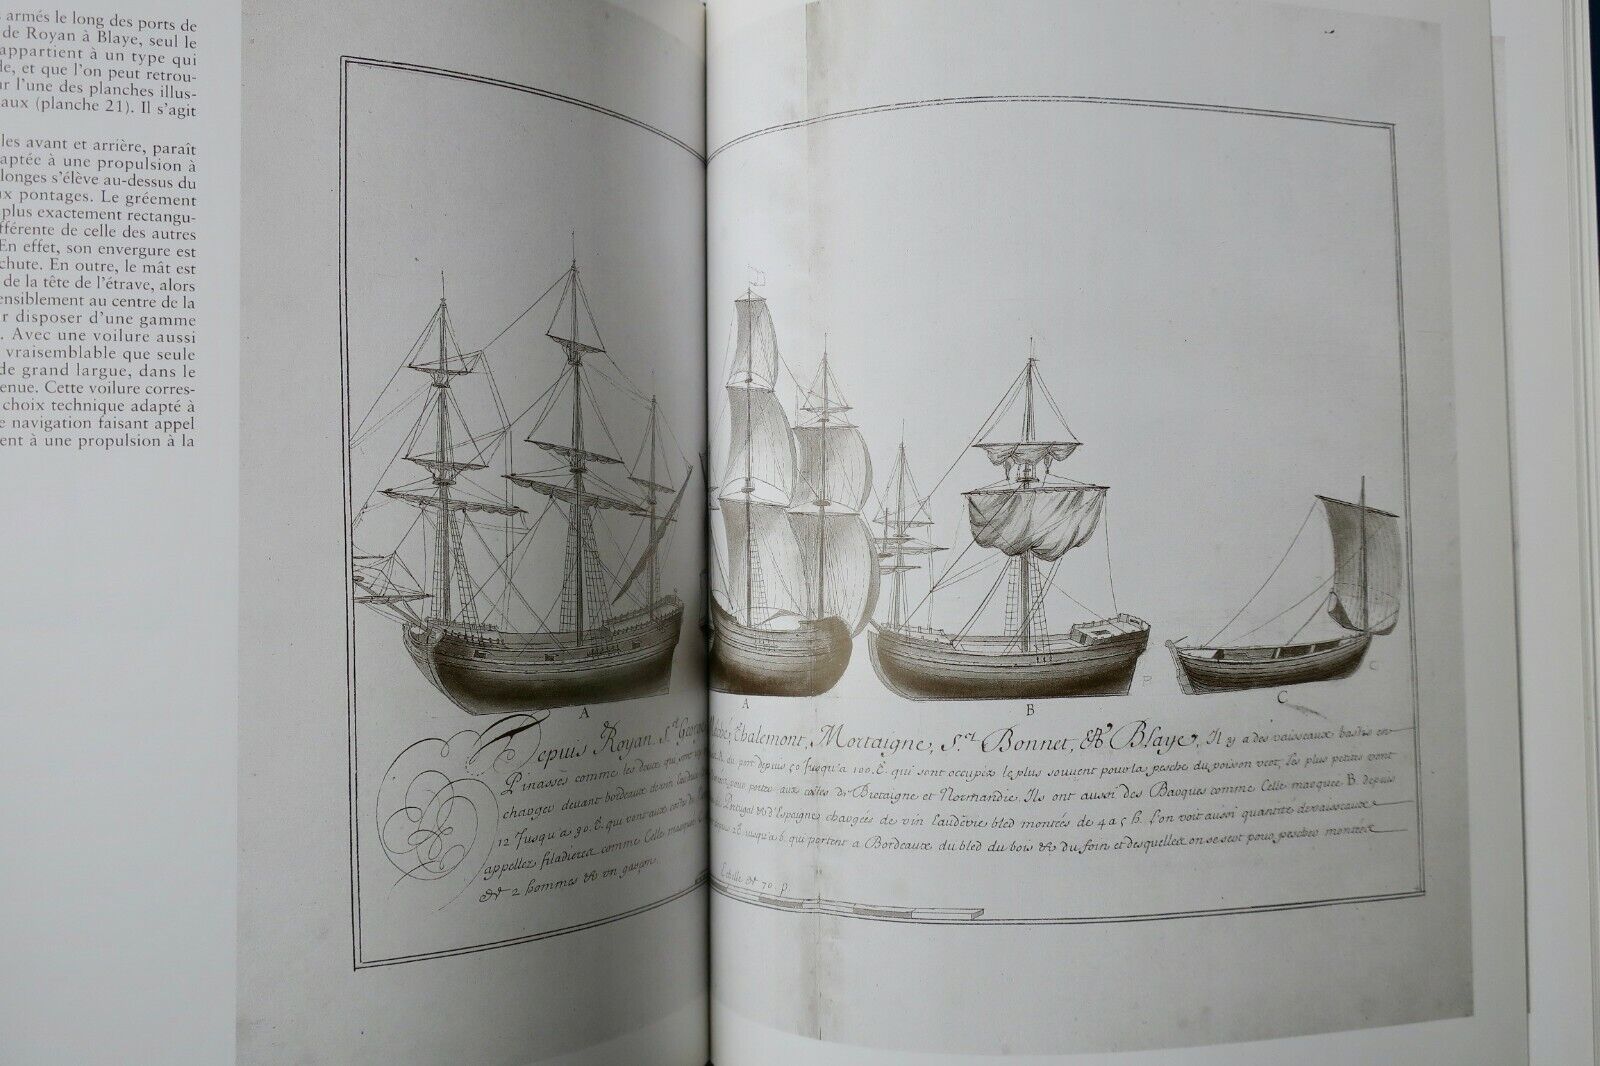 armés le long des ports de
de Royan à Blaye, seul le
appartient à un type qui
de, et que l'on peut retrou-
r l'une des planches illus-
aux (planche 21). Il s'agit
les avant et arrière, paraît
aptée à une propulsion à
longes s'élève au-dessus du
x pontages. Le gréement
plus exactement rectangu-
fférente de celle des autres
En effet, son envergure est
chute. En outre, le mât est
de la tête de l'étrave, alors
ensiblement au centre de la
r disposer d'une gamme
. Avec une voilure aussi
vraisemblable que seule
de grand largue, dans le
enue. Cette voilure corres-
choix technique adapté à
e navigation faisant appel
ent à une propulsion à la
A A B C
Depuis Royan, St. Georges Ebalemont, Mortaigne, St. Bonnet, & Blaye, Il y a des vaisseaux bastis en
Pinasses comme les deux qui sont A. du port depuis 50 Jusqu'a 100. qui sont occupix le plus souvent pour la pesche du poisson vert, les plus petits vont
charger devant bordeaux du vin pour porter aux costes de Bretaigne et Normandie. Ils ont aussi des Barques comme Celle marquee B. depuis
12 Jusqu'a 90. qui vont aux costes de Portugal & d'Espaigne chargées de vin bled montées de 4 a 5 h. l'on voit aussi quantité de vaisseaux
appellez filadieres comme Celle marquee Jusqu'a 6. qui portent a Bordeaux du bled du bois & du foin et desquelles on se sert pour pescher montés
de 2 hommes & un garçon.
Echelle de 70. p.